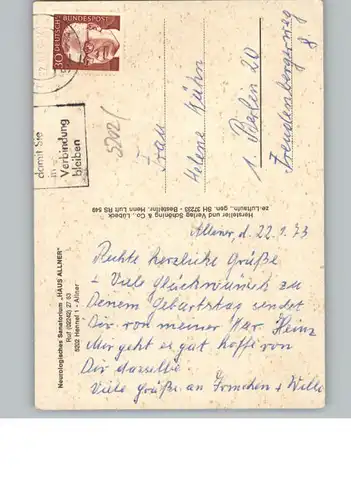 30
DEUTSCHE
BUNDESPOST
damit Sie
in
Verbindung
bleiben
5202
Frau
Helene Kühn
1 Berlin 20
Freudenbergerweg
8
Hersteller und Verlag Schöning & Co., Lübeck
ze-Luftaufn., gen. SH 37233 - Bestellnr. Henn Luft RS 549
Neurologisches Sanatorium „HAUS ALLNER"
Ruf (02242) 27 63
5202 Hennef 1 - Allner
Allner, d. 22.1.73
Rechte herzliche Grüße
+ Viele Glückwünsche zu
Deinem Geburtstag sendet
Dir von meiner Kur Heinz
Mir geht es gut hoffe von
Dir dasselbe
Viele Grüße an Irmchen + Willi